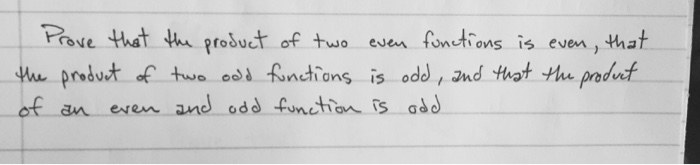 Prove that the product of two even functions is even, that
the product of two odd functions is odd, and that the product
of an even and odd function is odd